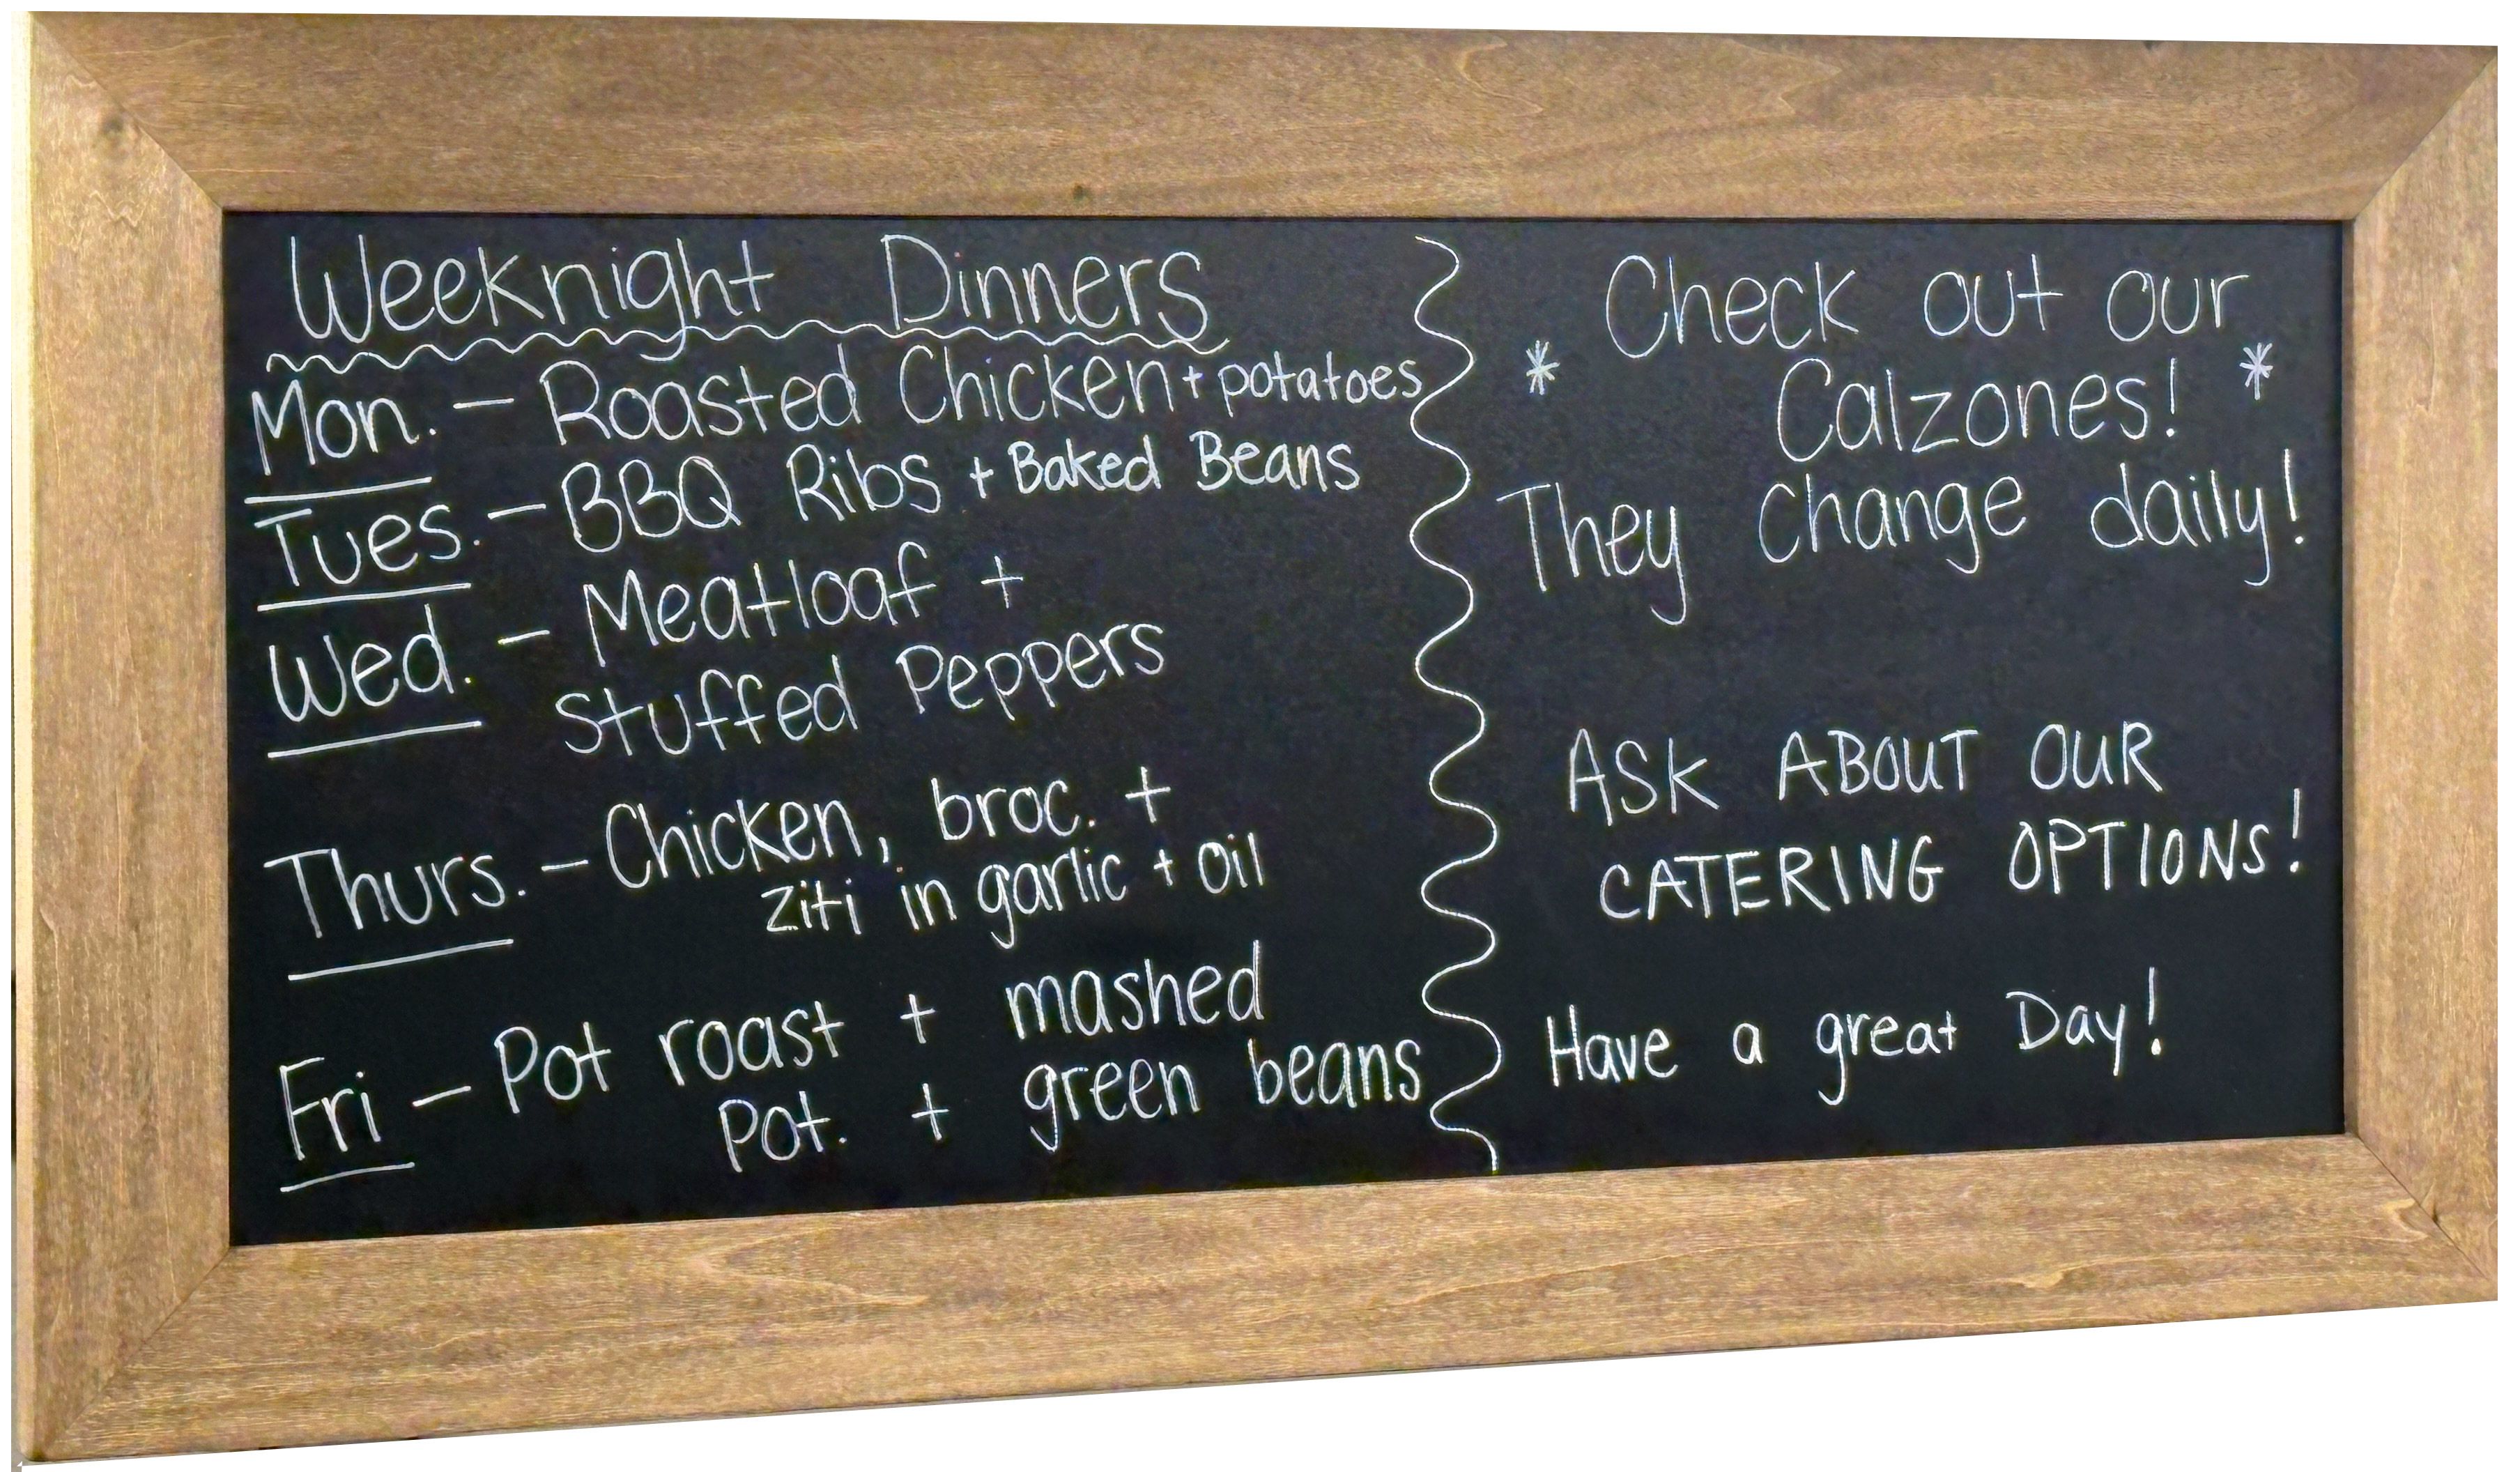 Weeknight Dinners
Mon. - Roasted Chicken + potatoes
Tues. - BBQ Ribs + Baked Beans
Wed. - Meatloaf +
stuffed Peppers
Thurs. - Chicken, broc. +
ziti in garlic + oil
Fri - Pot roast + mashed
pot. + green beans
Check out our
* Calzones! *
They change daily!
ASK ABOUT OUR
CATERING OPTIONS!
Have a great Day!